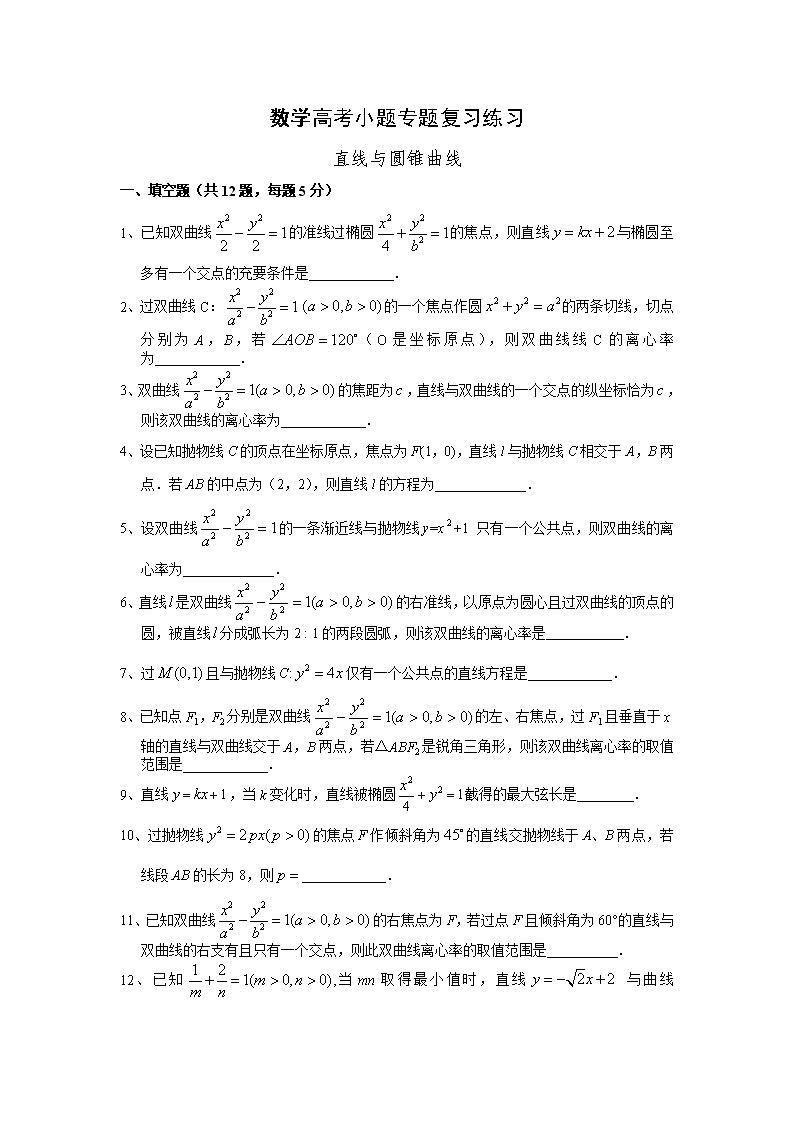 数学高考小题专题复习练习
直线与圆锥曲线
一、填空题（共12题，每题5分）
1、已知双曲线 x²/2 − y²/2 = 1的准线过椭圆 x²/4 + y²/b² = 1的焦点，则直线 y = kx + 2 与椭圆至
多有一个交点的充要条件是____________.
2、过双曲线C： x²/a² − y²/b² = 1 (a > 0, b > 0) 的一个焦点作圆 x² + y² = a² 的两条切线，切点
分别为 A，B，若 ∠AOB = 120°（O是坐标原点），则双曲线线C的离心率
为____________.
3、双曲线 x²/a² − y²/b² = 1(a > 0, b > 0) 的焦距为c，直线与双曲线的一个交点的纵坐标恰为c，
则该双曲线的离心率为____________.
4、设已知抛物线C的顶点在坐标原点，焦点为F(1，0)，直线l与抛物线C相交于A，B两
点.若AB的中点为（2，2），则直线l的方程为_____________.
5、设双曲线 x²/a² − y²/b² = 1的一条渐近线与抛物线y=x²+1 只有一个公共点，则双曲线的离
心率为_____________.
6、直线l是双曲线 x²/a² − y²/b² = 1(a > 0, b > 0) 的右准线，以原点为圆心且过双曲线的顶点的
圆，被直线l分成弧长为 2 : 1的两段圆弧，则该双曲线的离心率是___________.
7、过 M(0,1) 且与抛物线 C: y² = 4x 仅有一个公共点的直线方程是____________.
8、已知点F₁，F₂分别是双曲线 x²/a² − y²/b² = 1(a > 0, b > 0) 的左、右焦点，过F₁且垂直于x
轴的直线与双曲线交于A，B两点，若△ABF₂是锐角三角形，则该双曲线离心率的取值
范围是____________.
9、直线 y = kx + 1，当k变化时，直线被椭圆 x²/4 + y² = 1截得的最大弦长是________.
10、过抛物线 y² = 2px(p > 0) 的焦点F作倾斜角为 45° 的直线交抛物线于A、B两点，若
线段AB的长为8，则 p = ____________.
11、已知双曲线 x²/a² − y²/b² = 1(a > 0, b > 0) 的右焦点为F，若过点F且倾斜角为60°的直线与
双曲线的右支有且只有一个交点，则此双曲线离心率的取值范围是__________.
12、已知 1/m + 2/n = 1(m > 0, n > 0),当mn取得最小值时，直线 y = −√2x + 2 与曲线